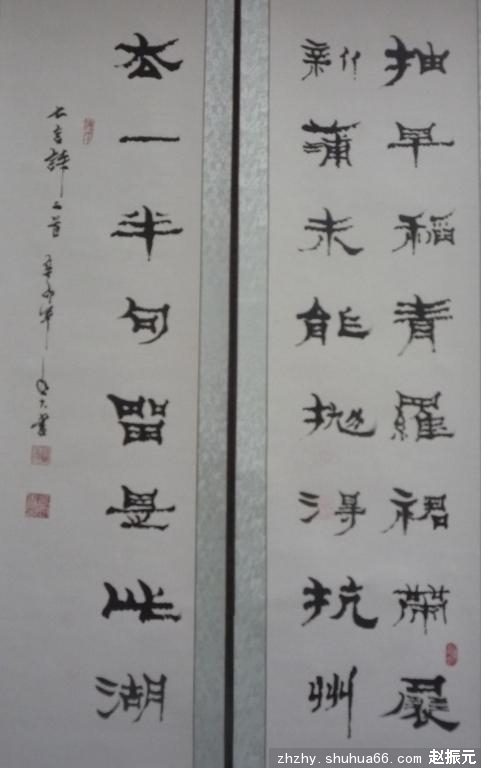 抽早稻青羅裙帶展
新蒲未能抛得杭州
去一半句留是此湖
七言詩 首 辛卯年 書
zhzhy.shuhua66.com 赵振元